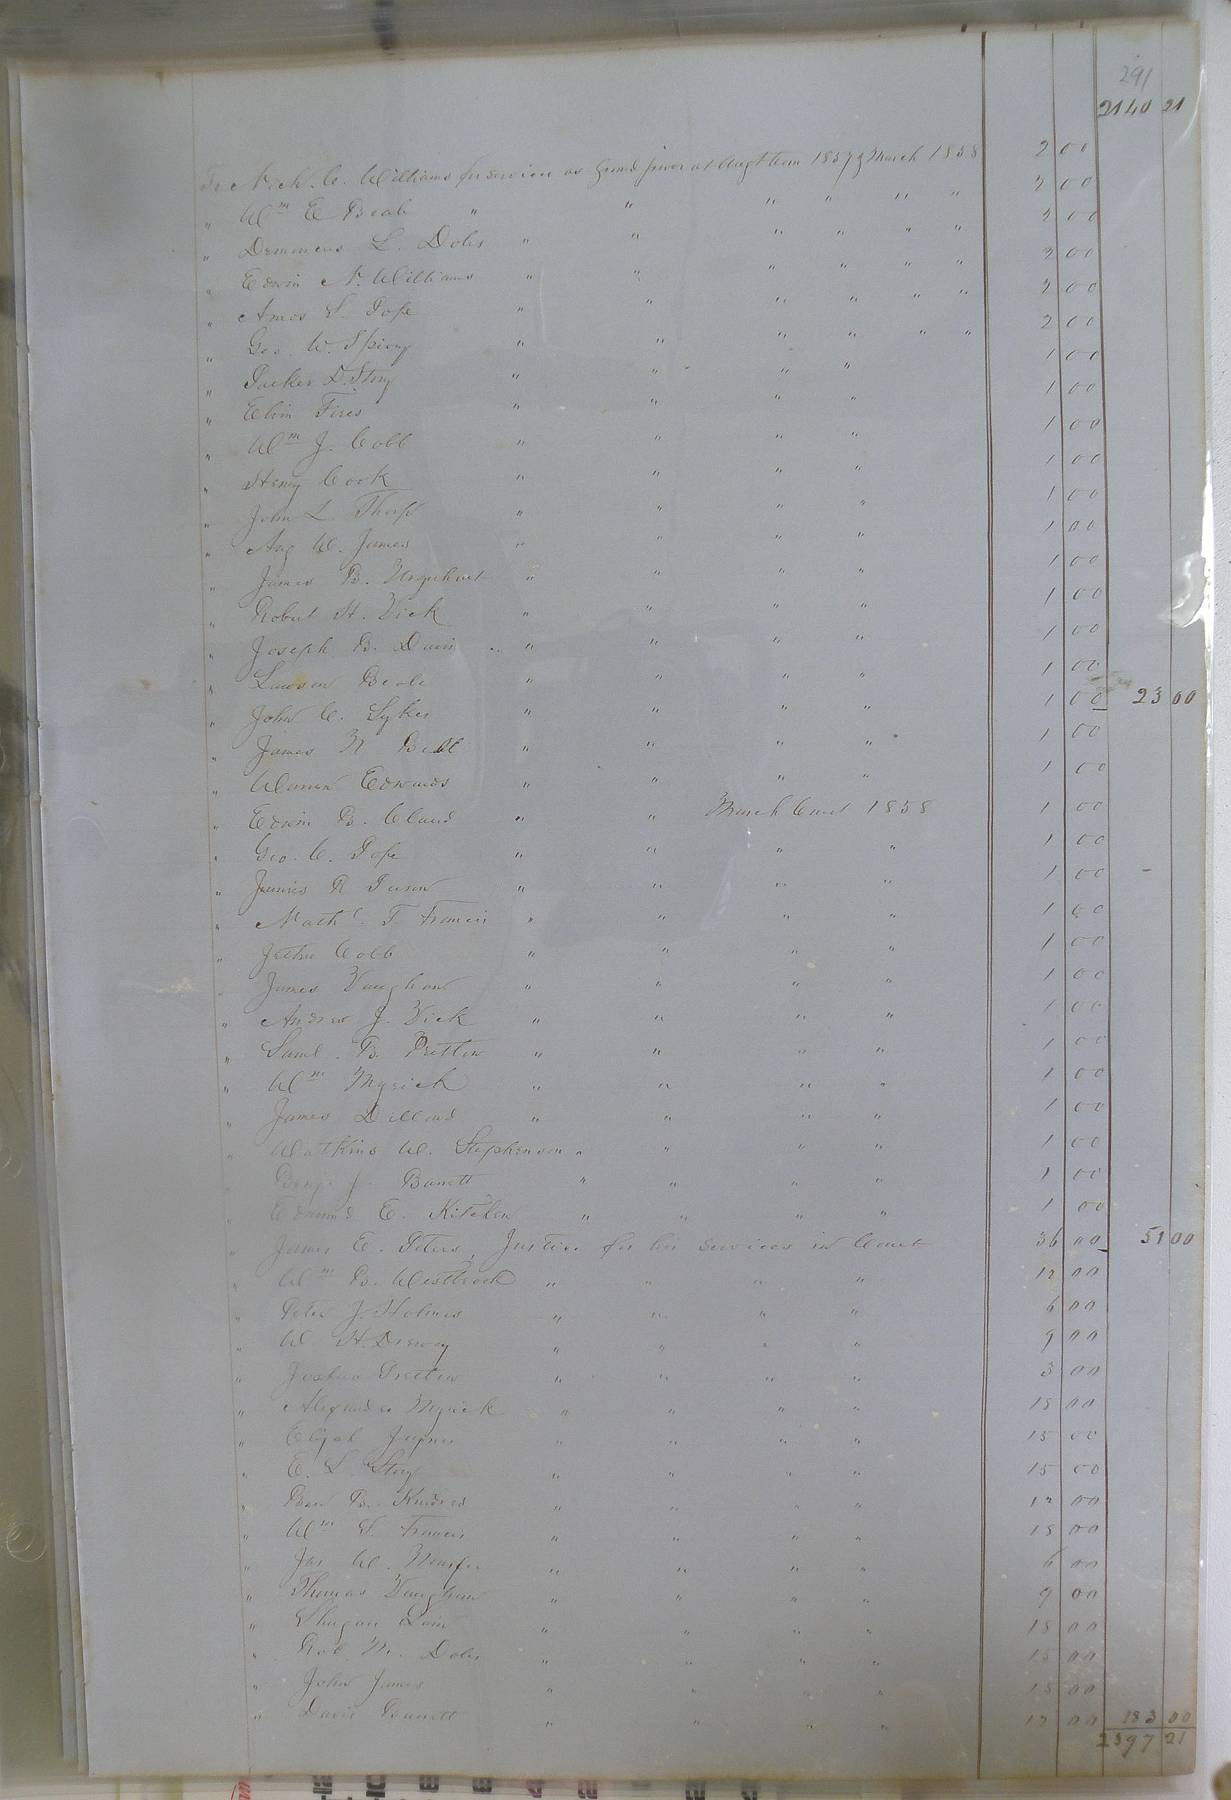 291
2140 21
To Nich. C. Williams for services as Grand juror at Augt term 1857 & March 1858 2 00
" Wm E Beal " " " " " " 2 00
" L. Doles " " " " " " 2 00
" Edwin N. Williams " " " " " " 2 00
" Amos S. Pope " " " " " " 2 00
" Geo. W. Spivey " " " " " " 2 00
" D. Story " " " " 1 00
" Fires " " " " 1 00
" Wm J. Cobb " " " " 1 00
" Henry Cook " " " " 1 00
" John L Thorp " " " " 1 00
" Aug W. James " " " " 1 00
" James B. Urquhart " " " " 1 00
" Robert H. Vick " " " " 1 00
" Joseph B. " " " " 1 00
" Lawson Beale " " " " 1 00
" John C. Sykes " " " " 1 00 23 00
" James N Bell " " " " 1 00
" Warren Edwards " " " " 1 00
" Edwin B. Claud " " March Court 1858 1 00
" Geo. C. Pope " " " " 1 00
" Junius R " " " " 1 00
" Nathl. T Francis " " " " 1 00
" Jethro Cobb " " " " 1 00
" James Vaughan " " " " 1 00
" Andrew J. Vick " " " " 1 00
" Saml. B. Pretlow " " " " 1 00
" Wm Myrick " " " " 1 00
" James Dillard " " " " 1 00
" Watkins W. Stephenson " " " " 1 00
" Benj. J. Barrett " " " " 1 00
" Edmund E. Kitchen " " " " 1 00
" James E. Peters, Justice for his services in Court 36 00 51 00
" Wm B. Westbrook " " " " 12 00
" Peter J. Holmes " " " " 6 00
" W. H. Drewry " " " " 9 00
" Joshua Pretlow " " " " 3 00
" Alexander Myrick " " " " 18 00
" Elijah Joyner " " " " 15 00
" E. L. Story " " " " 15 00
" Ben B. Kindred " " " " 12 00
" Wm S. Francis " " " " 18 00
" Jas W. " " " " 6 00
" Thomas Vaughan " " " " 9 00
" " " " " 18 00
" Rob. M. Doles " " " " 15 00
" John James " " " " 15 00
" David Barrett " " " " 12 00 183 00
2397 21